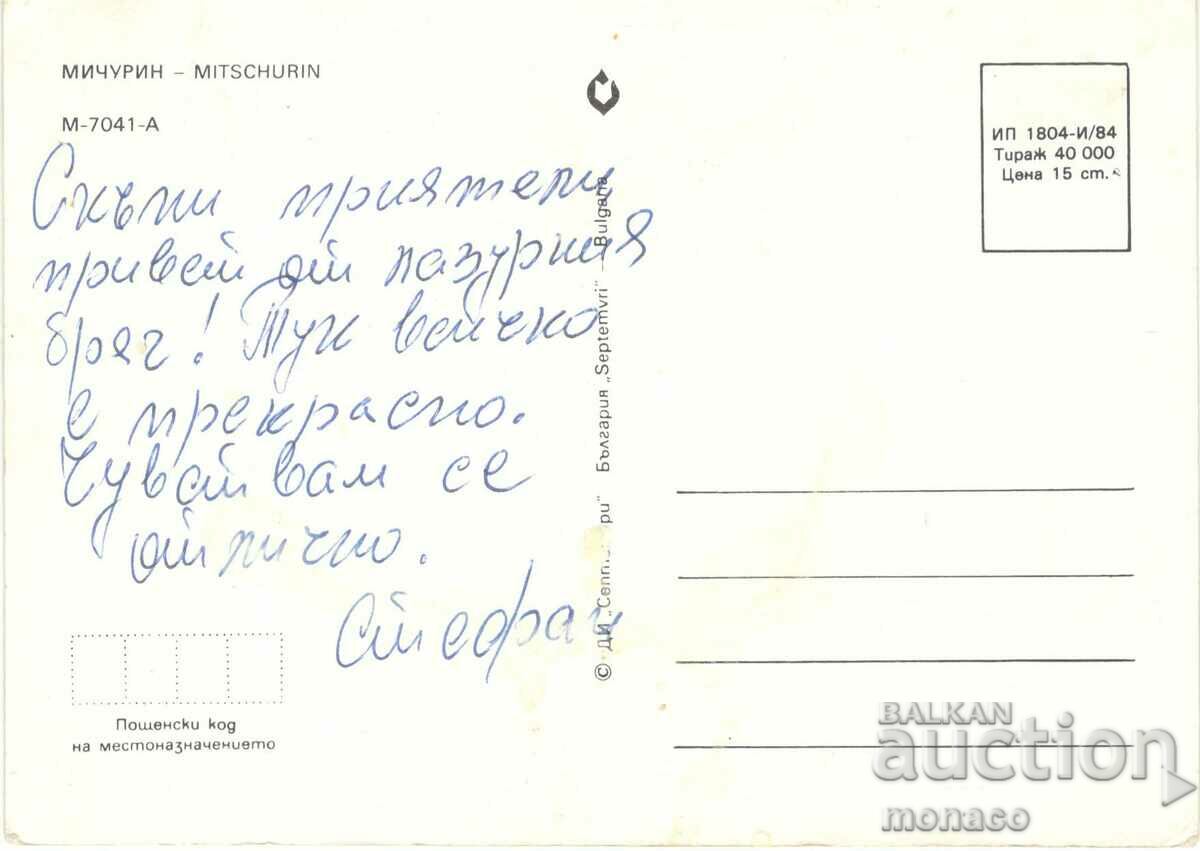 МИЧУРИН – MITSCHURIN
М-7041-А
Скъпи приятели
привет от лазурния
бряг! Тук всичко
е прекрасно.
Чувствам се
отлично.
Стефан
Пощенски код
на местоназначението
© ДИ „Септември" България „Septemvri" – Bulgaria
ИП 1804-И/84
Тираж 40 000
Цена 15 ст.
BALKAN
auction
monaco